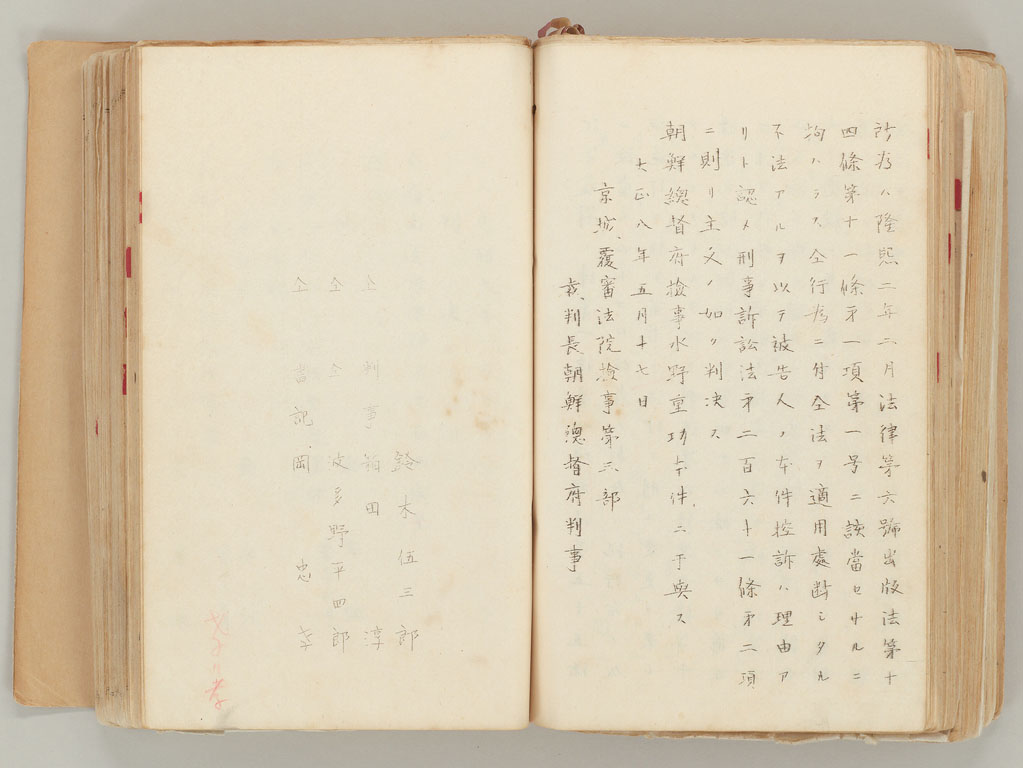 所為ハ隆熙二年二月法律第六號出版法第十
四條第十一條第一項第一号ニ該當セサルニ
拘ハラス仝行為ニ対仝法ヲ適用處断シタル
不法アルヲ以テ被告人ノ本件控訴ハ理由ア
リト認メ刑事訴訟法第二百六十一條第二項
ニ則リ主文ノ如ク判决ス
朝鮮總督府检事水野重功本件ニ干與ス
大正八年五月十七日
京城覆審法院检事第三部
裁判長朝鮮總督府判事
鈴木伍三郎
仝 判事 箱田 淳
仝 仝 波多野平四郎
仝 書記 岡 忠